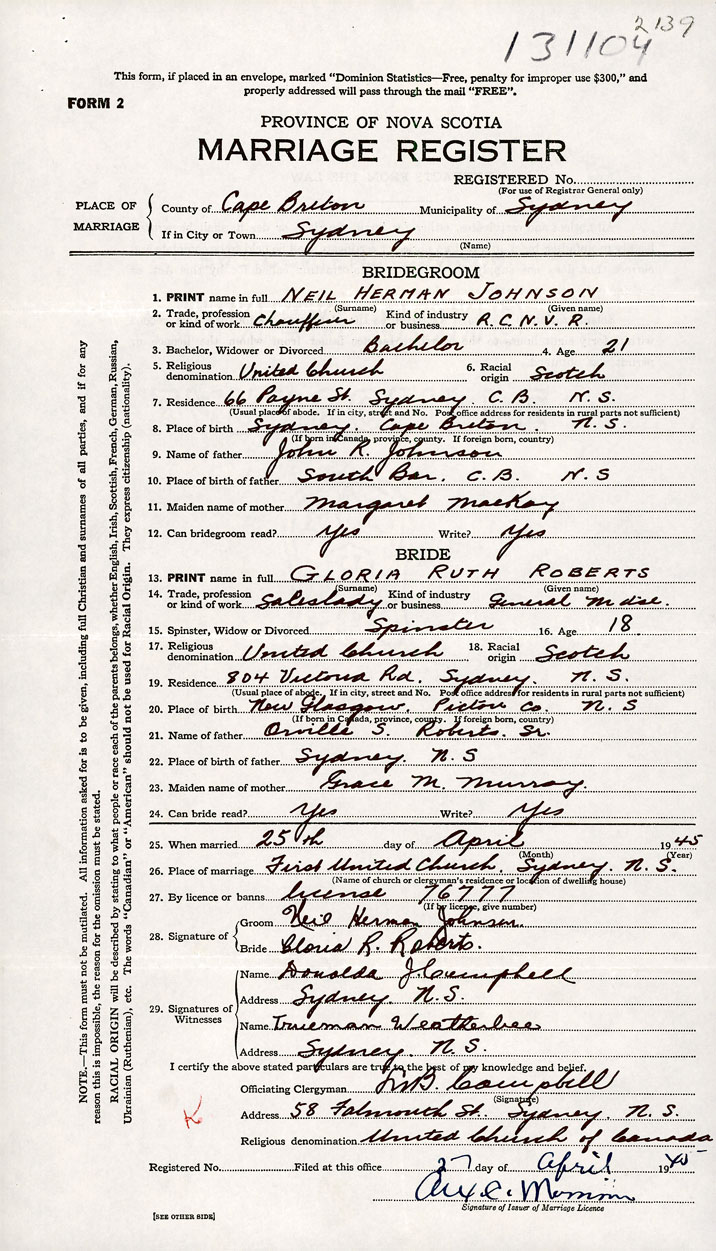 2139
131104
This form, if placed in an envelope, marked "Dominion Statistics—Free, penalty for improper use $300," and
properly addressed will pass through the mail "FREE".
FORM 2
PROVINCE OF NOVA SCOTIA
MARRIAGE REGISTER
REGISTERED No.
(For use of Registrar General only)
PLACE OF MARRIAGE
County of Cape Breton Municipality of Sydney
If in City or Town Sydney
(Name)
BRIDEGROOM
1. PRINT name in full NEIL HERMAN JOHNSON
(Surname) (Given name)
2. Trade, profession or kind of work Chauffeur Kind of industry or business R.C.N.V.R.
3. Bachelor, Widower or Divorced Bachelor 4. Age 21
5. Religious denomination United Church 6. Racial origin Scotch
7. Residence 66 Payne St. Sydney. C.B. N.S.
(Usual place of abode. If in city, street and No. Post office address for residents in rural parts not sufficient)
8. Place of birth Sydney. Cape Breton. N.S.
(If born in Canada, province, county. If foreign born, country)
9. Name of father John R. Johnson
10. Place of birth of father South Bar. C.B. N.S
11. Maiden name of mother Margaret MacKay
12. Can bridegroom read? Yes Write? Yes
BRIDE
13. PRINT name in full GLORIA RUTH ROBERTS
(Surname) (Given name)
14. Trade, profession or kind of work Saleslady Kind of industry or business General Mdse.
15. Spinster, Widow or Divorced Spinster 16. Age 18.
17. Religious denomination United Church 18. Racial origin Scotch
19. Residence 804 Victoria Rd. Sydney. N.S.
(Usual place of abode. If in city, street and No. Post office address for residents in rural parts not sufficient)
20. Place of birth New Glasgow. Pictou Co. N.S
(If born in Canada, province, county. If foreign born, country)
21. Name of father Orville S. Roberts. Sr.
22. Place of birth of father Sydney. N.S
23. Maiden name of mother Grace M. Murray.
24. Can bride read? Yes Write? Yes
25. When married 25th day of April 1945
(Month) (Year)
26. Place of marriage First United Church. Sydney. N.S.
(Name of church or clergyman's residence or location of dwelling house)
27. By licence or banns license 76777
(If by licence, give number)
28. Signature of
Groom Neil Herman Johnson.
Bride Gloria R. Roberts.
29. Signatures of Witnesses
Name Donalda J Campbell
Address Sydney. N.S.
Name Trueman Weatherbee
Address Sydney. N.S.
I certify the above stated particulars are true to the best of my knowledge and belief.
Officiating Clergyman Campbell
(Signature)
Address 58 Falmouth St. Sydney. N.S.
Religious denomination United Church of Canada
Registered No. Filed at this office 27 day of April 1945
Signature of Issuer of Marriage Licence
[SEE OTHER SIDE]
K
NOTE.—This form must not be mutilated. All information asked for is to be given, including full Christian and surnames of all parties, and if for any
reason this is impossible, the reason for the omission must be stated.
RACIAL ORIGIN will be described by stating to what people or race each of the parents belongs, whether English, Irish, Scottish, French, German, Russian,
Ukrainian (Ruthenian), etc. The words "Canadian" or "American" should not be used for Racial Origin. They express citizenship (nationality).